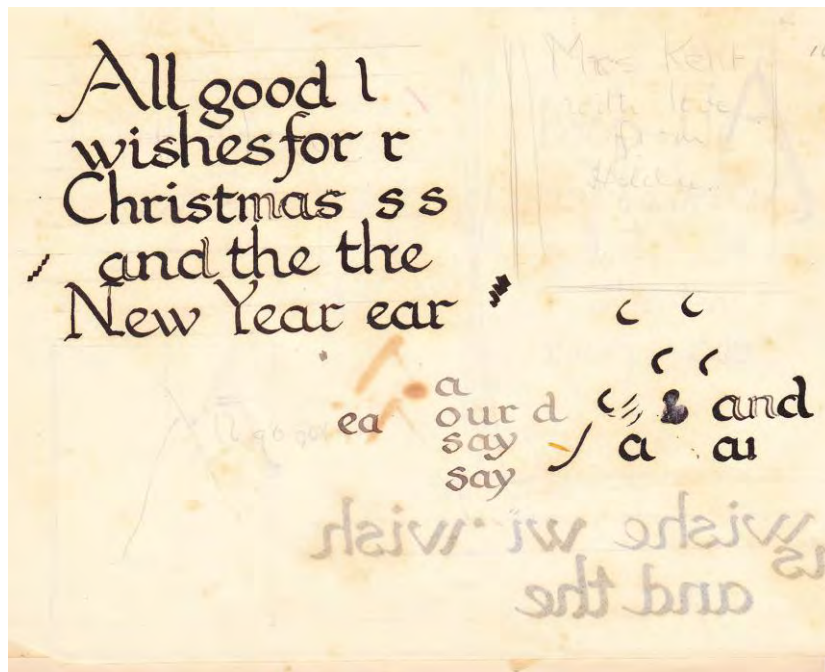 All good l
wishes for r
Christmas s s
and the the
New Year ear
Mrs Kent
with love
from
a
ea our d and
say a au
say
wishe wi wish
and the